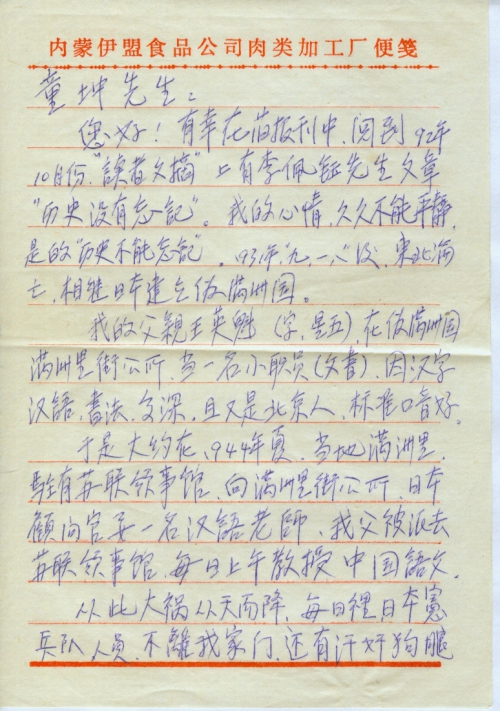 内蒙伊盟食品公司肉类加工厂便笺
童坤先生：
您好！有幸在旧报刊中，阅到92年
10月份，“讀者文摘”上有李佩钰先生文章
“历史没有忘記”。我的心情，久久不能平静，
是的“历史不能忘記”。931年“九.一八”後，東北淪
亡，相继日本建立伪满洲国。
我的父親王英魁（字，星五）在伪满洲国
满洲里街公所，当一名小职员（文書），因汉字
汉語，書法，文深，且又是北京人，标准口音好。
于是大约在，1944年夏，当地满洲里，
駐有苏联领事馆，向满洲里街公所，日本
顧问官要一名汉語老師，我父被派去
苏联领事馆，每日上午教授中国語文。
从此大祸从天而降，每日裡，日本憲
兵队人員，不離我家门，还有汗奸狗腿